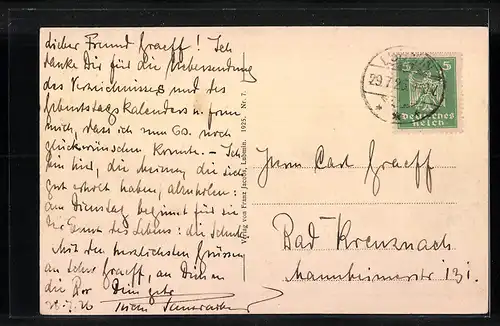 Lieber Freund Graeff! Ich
danke Dir für die Uebersendung
des Verzeichnisses und des
Geburtstagskalenders u. freue
mich, dass ich zum 60. noch
glückwünschen konnte. - Ich
bin hier, die Meinen, die sich
gut erholt haben, abzuholen:
am Dienstag beginnt für sie
der Ernst des Lebens: die Schule.
Mit den herzlichsten Grüssen
an Schw Graeff, an Dich
Dein getr.
Verlag von Franz Jacobi, 1925. Nr. 7.
29.7.26
5
Deutsches
Reich
Herrn Carl Graeff
Bad Kreuznach
Mannheimerstr 131.